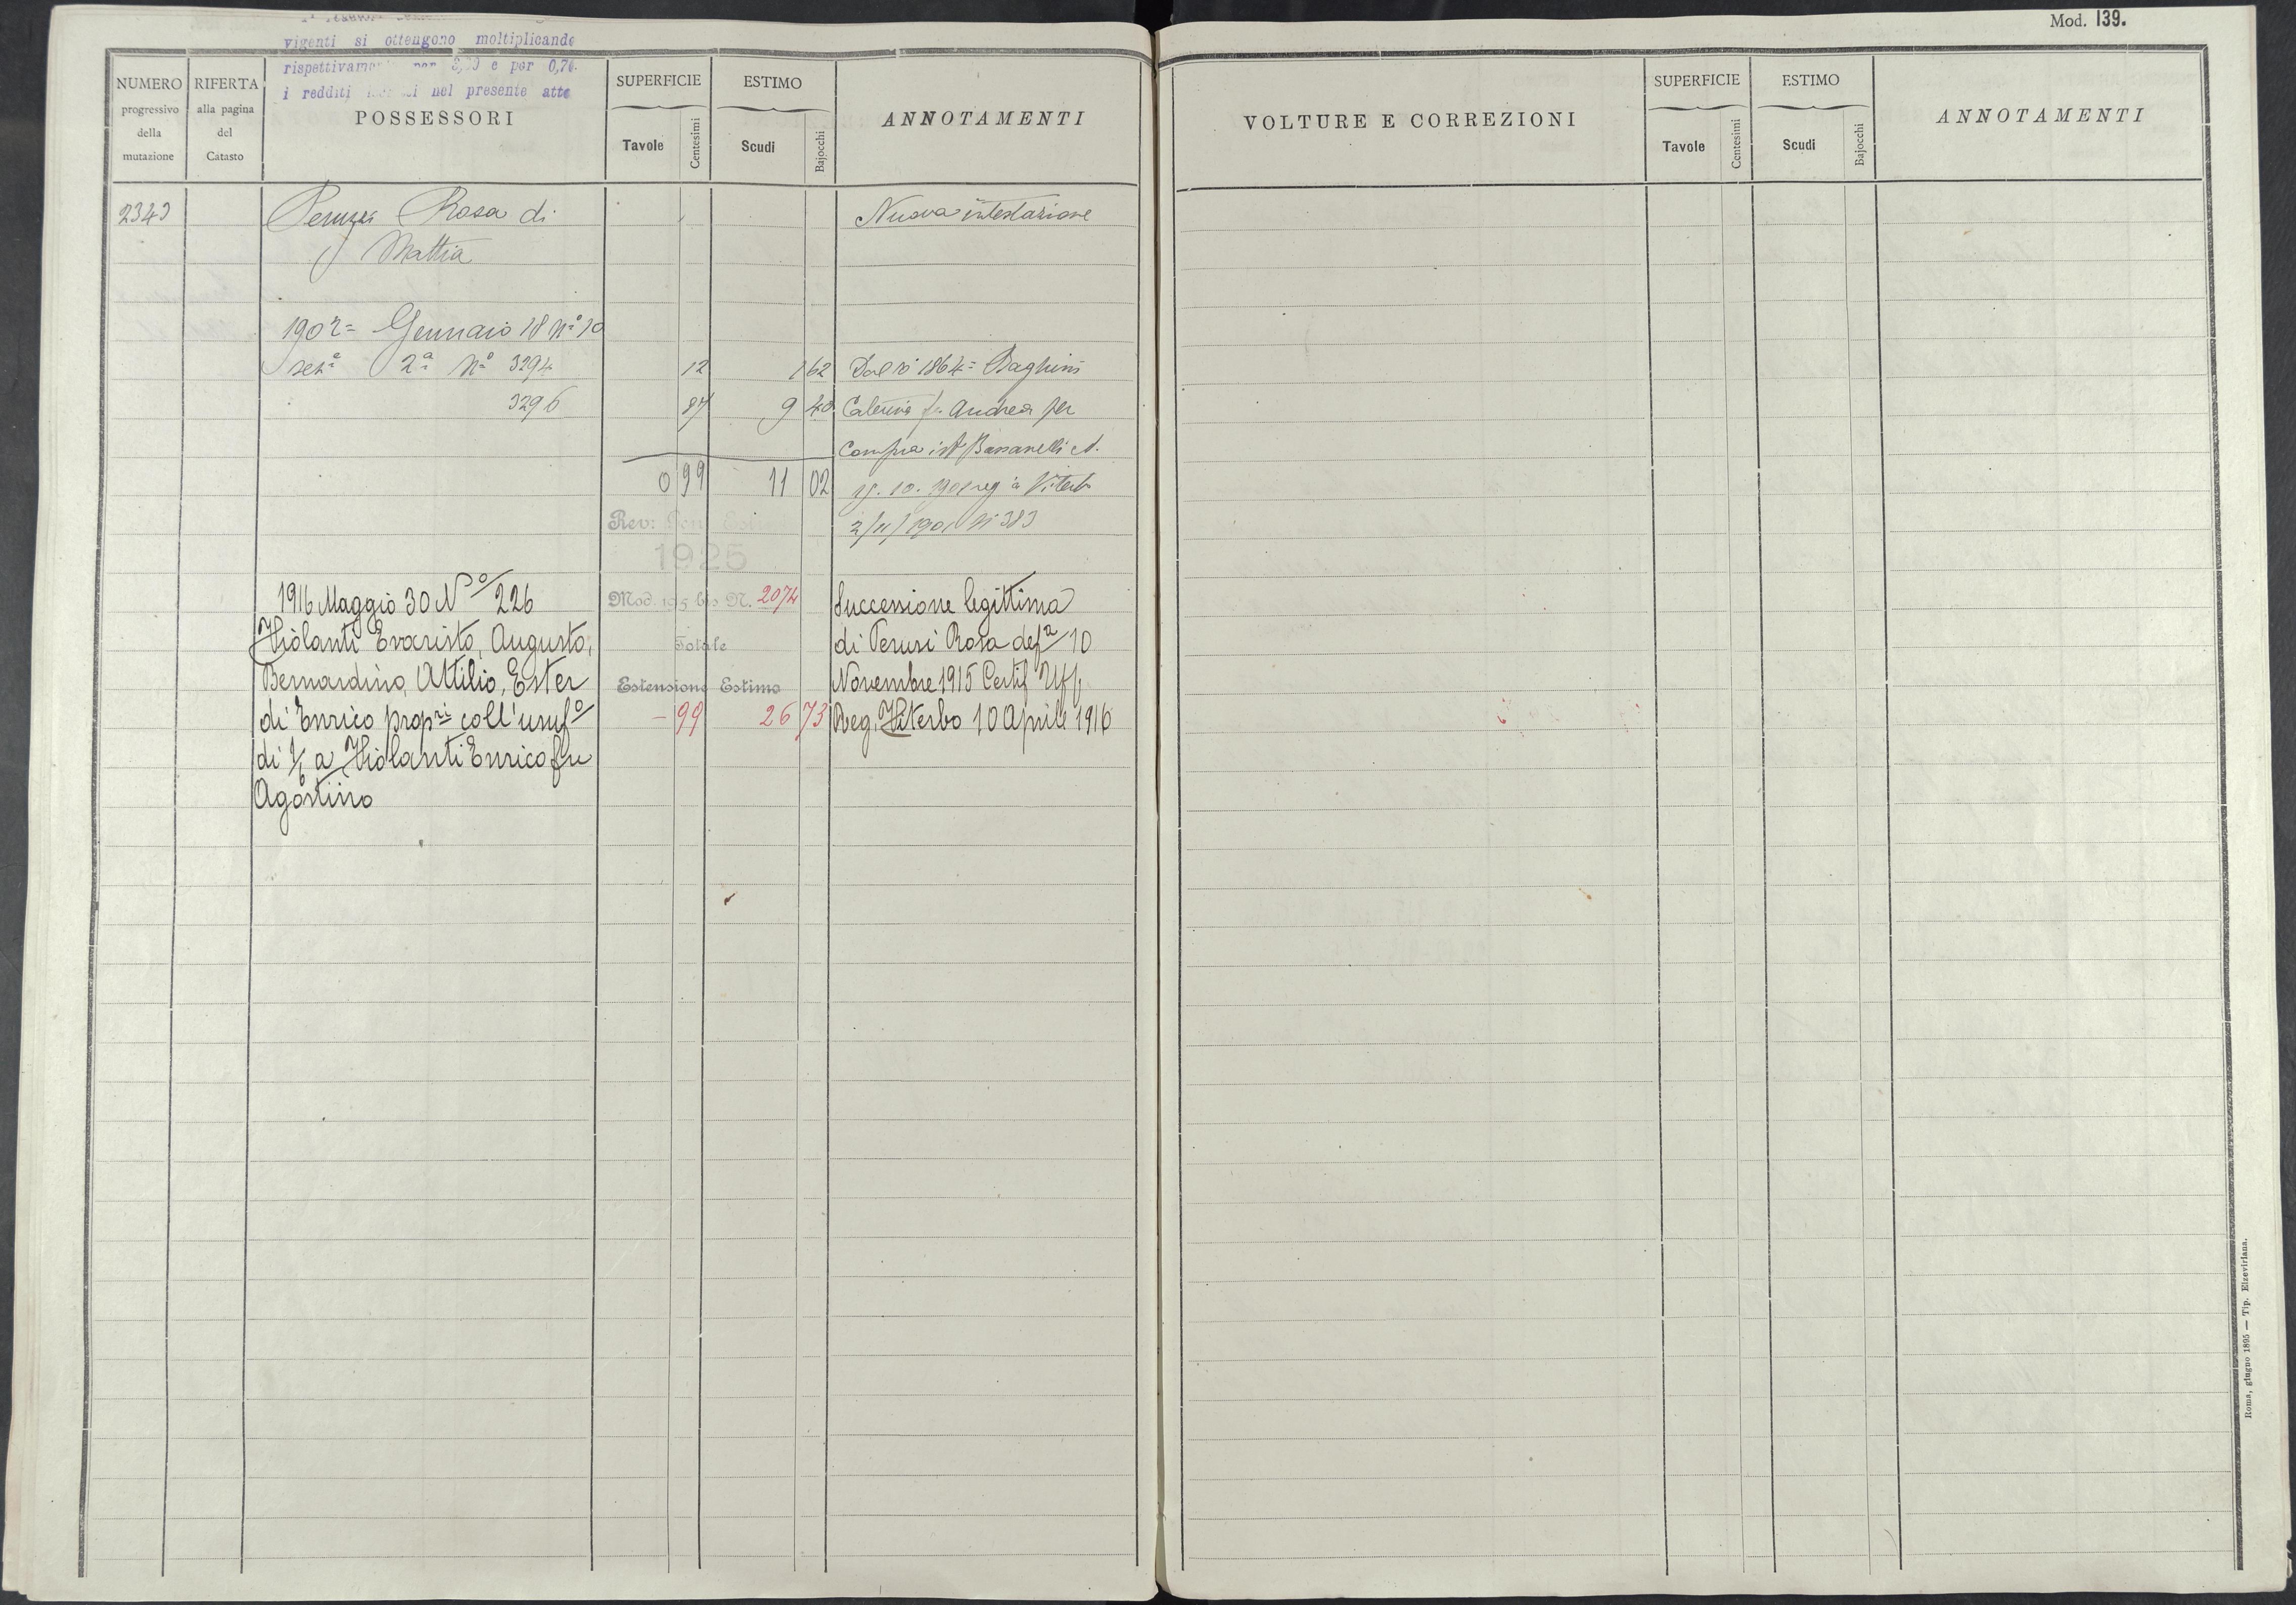 Mod. 139.
vigenti si ottengono moltiplicando
rispettivamente per e per 0,70.
i redditi nel presente atto
NUMERO progressivo della mutazione
RIFERTA alla pagina del Catasto
POSSESSORI
SUPERFICIE
Tavole
Centesimi
ESTIMO
Scudi
Bajocchi
ANNOTAMENTI
2343 Rosa di Nuova intestazione
Mattia
1902= Gennaio 18 Nº 10
sezª 2ª Nº 3294 12 1 62 Dal 1864=
3296 87 9 40 Andrea per
Compra
0 99 11 02
Rev: Gen Estimi 2/11/1901 Nº 383
1925
1916 Maggio 30 Nº 226 Mod. 195 bis N. 2074 Successione legittima
Violanti Evaristo, Augusto, Totale di Perusi Rosa defª 10
Bernardino, Attilio, Ester Estensione Estimo Novembre 1915 Certif Uff
di Enrico propri coll'usufº - 99 26 73 Reg. Viterbo 10 Aprile 1916
di a Violanti Enrico fu
Agostino
VOLTURE E CORREZIONI
SUPERFICIE
Tavole
Centesimi
ESTIMO
Scudi
Bajocchi
ANNOTAMENTI
Roma, giugno 1895 — Tip. Elzeviriana.